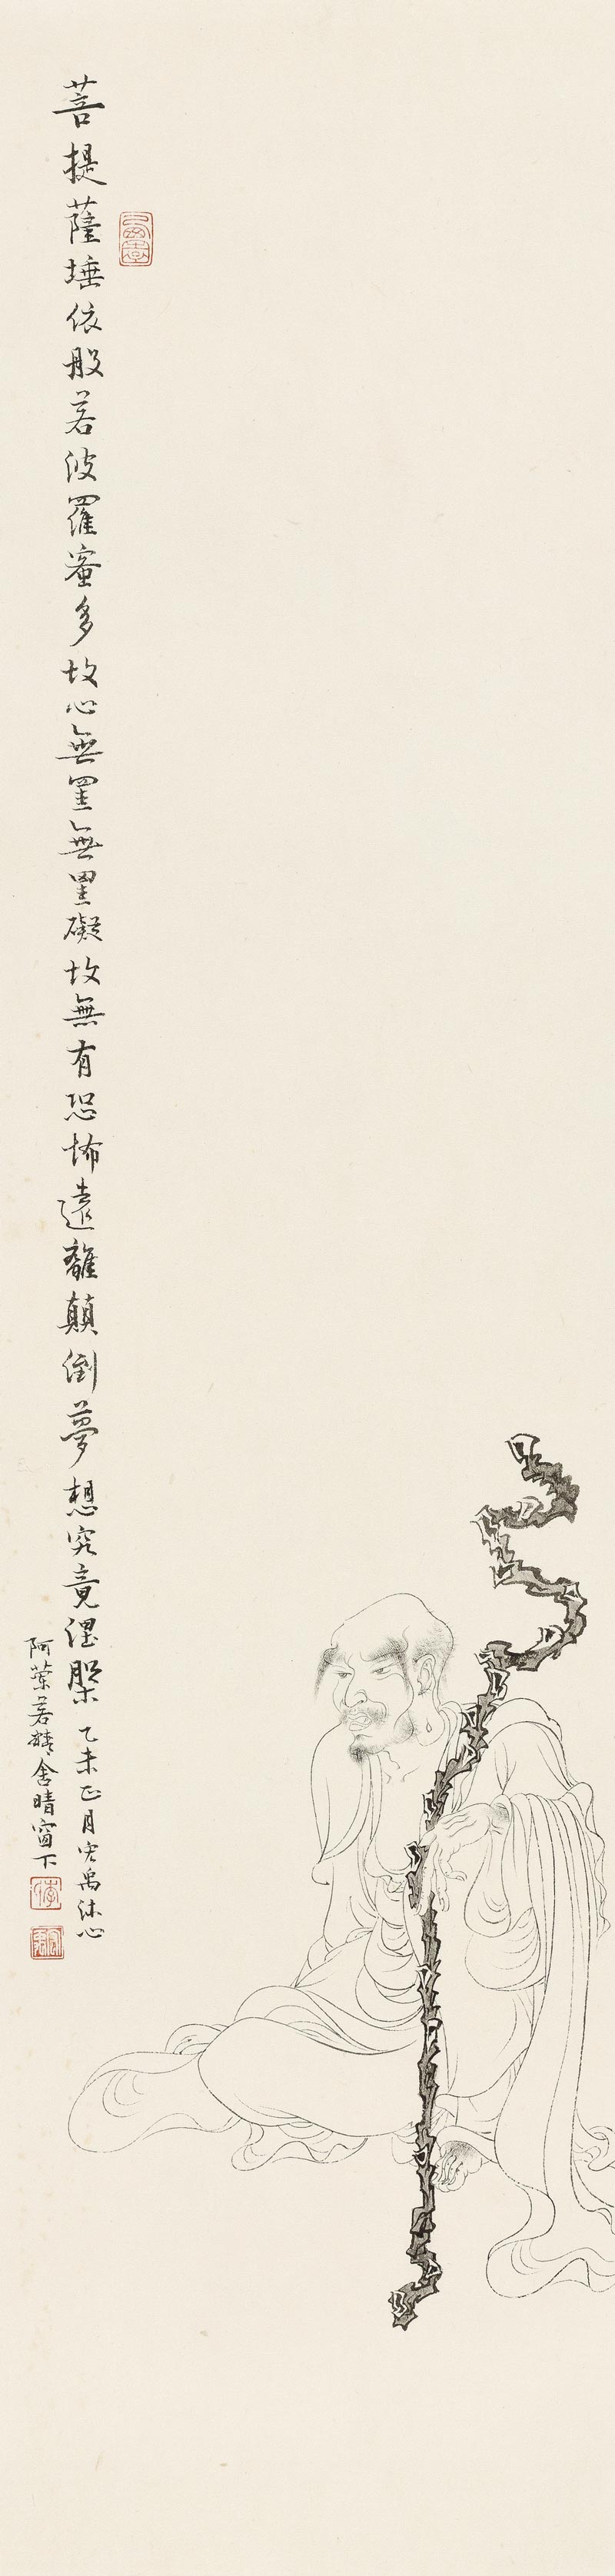 菩提薩埵依般若波羅蜜多故心無罣無罣礙故無有恐怖遠離顛倒夢想究竟涅槃 乙未正月宏禹沐心
阿蘭若精舍晴窗下